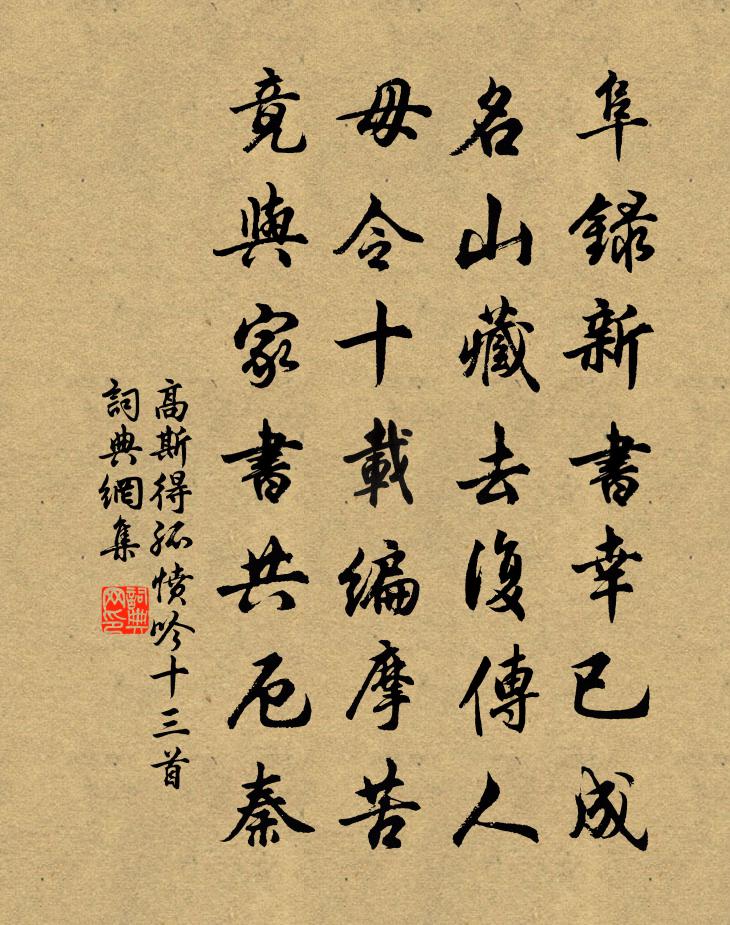 阜錄新書幸已成
名山藏去復傳人
毋令十載編摩苦
竟與家書共厄秦
高斯得孤憤吟十三首
詞典網集
詞典网印